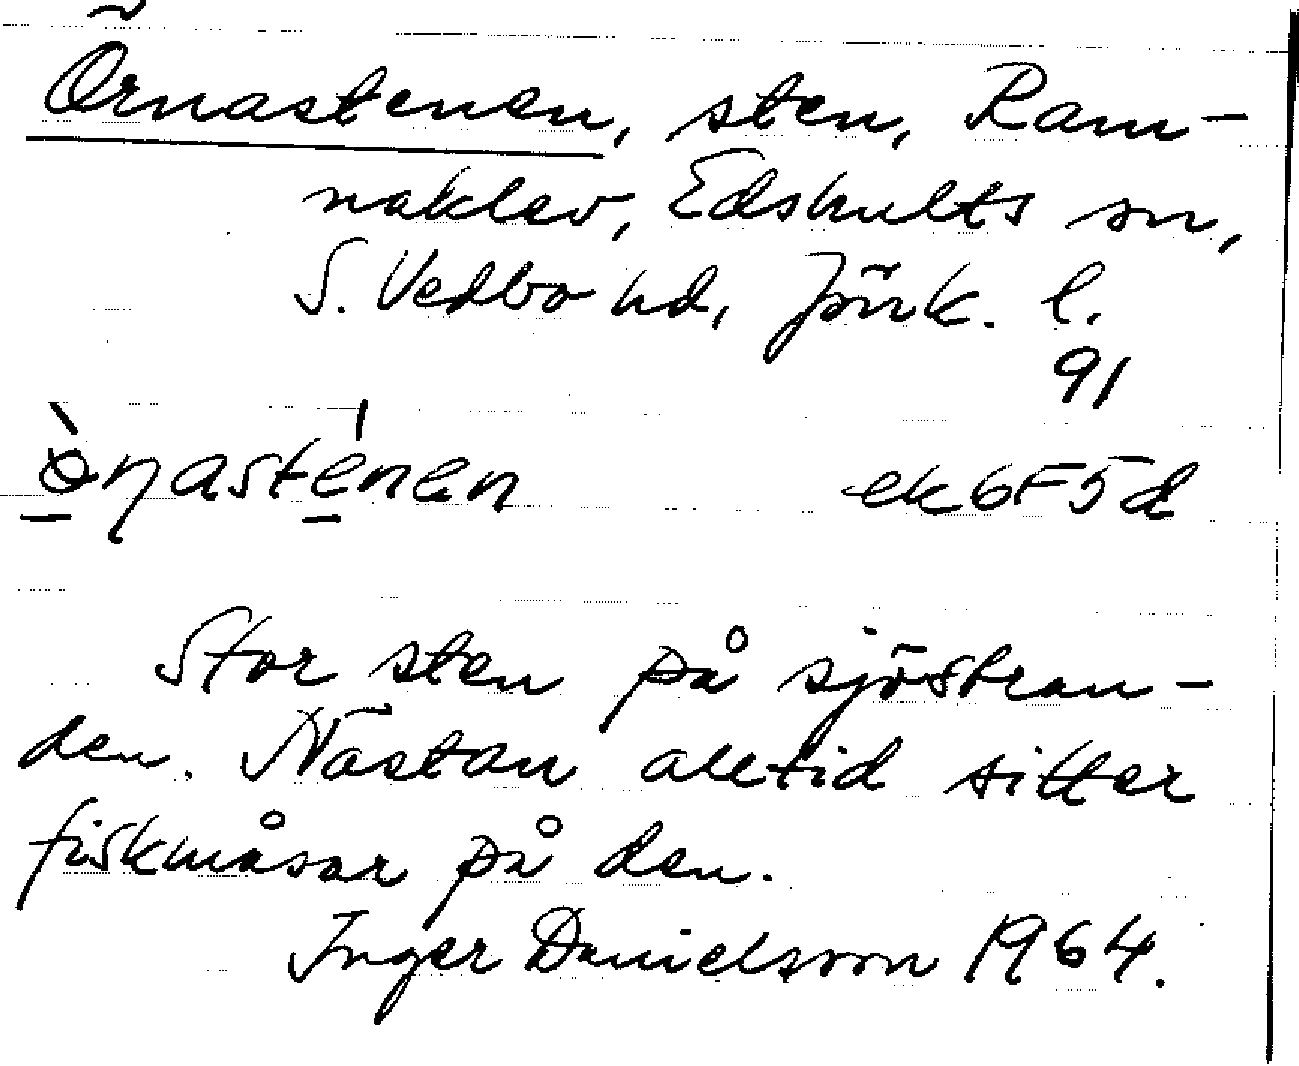 Örnastenen, sten, Ram-
naklev, Edshults sn,
S. Vedbo hd, Jönk. l.
91
ek6F5d
Stor sten på sjöstran-
den. Nästan alltid sitter
fiskmåsar på den.
Inger Danielsson 1964.